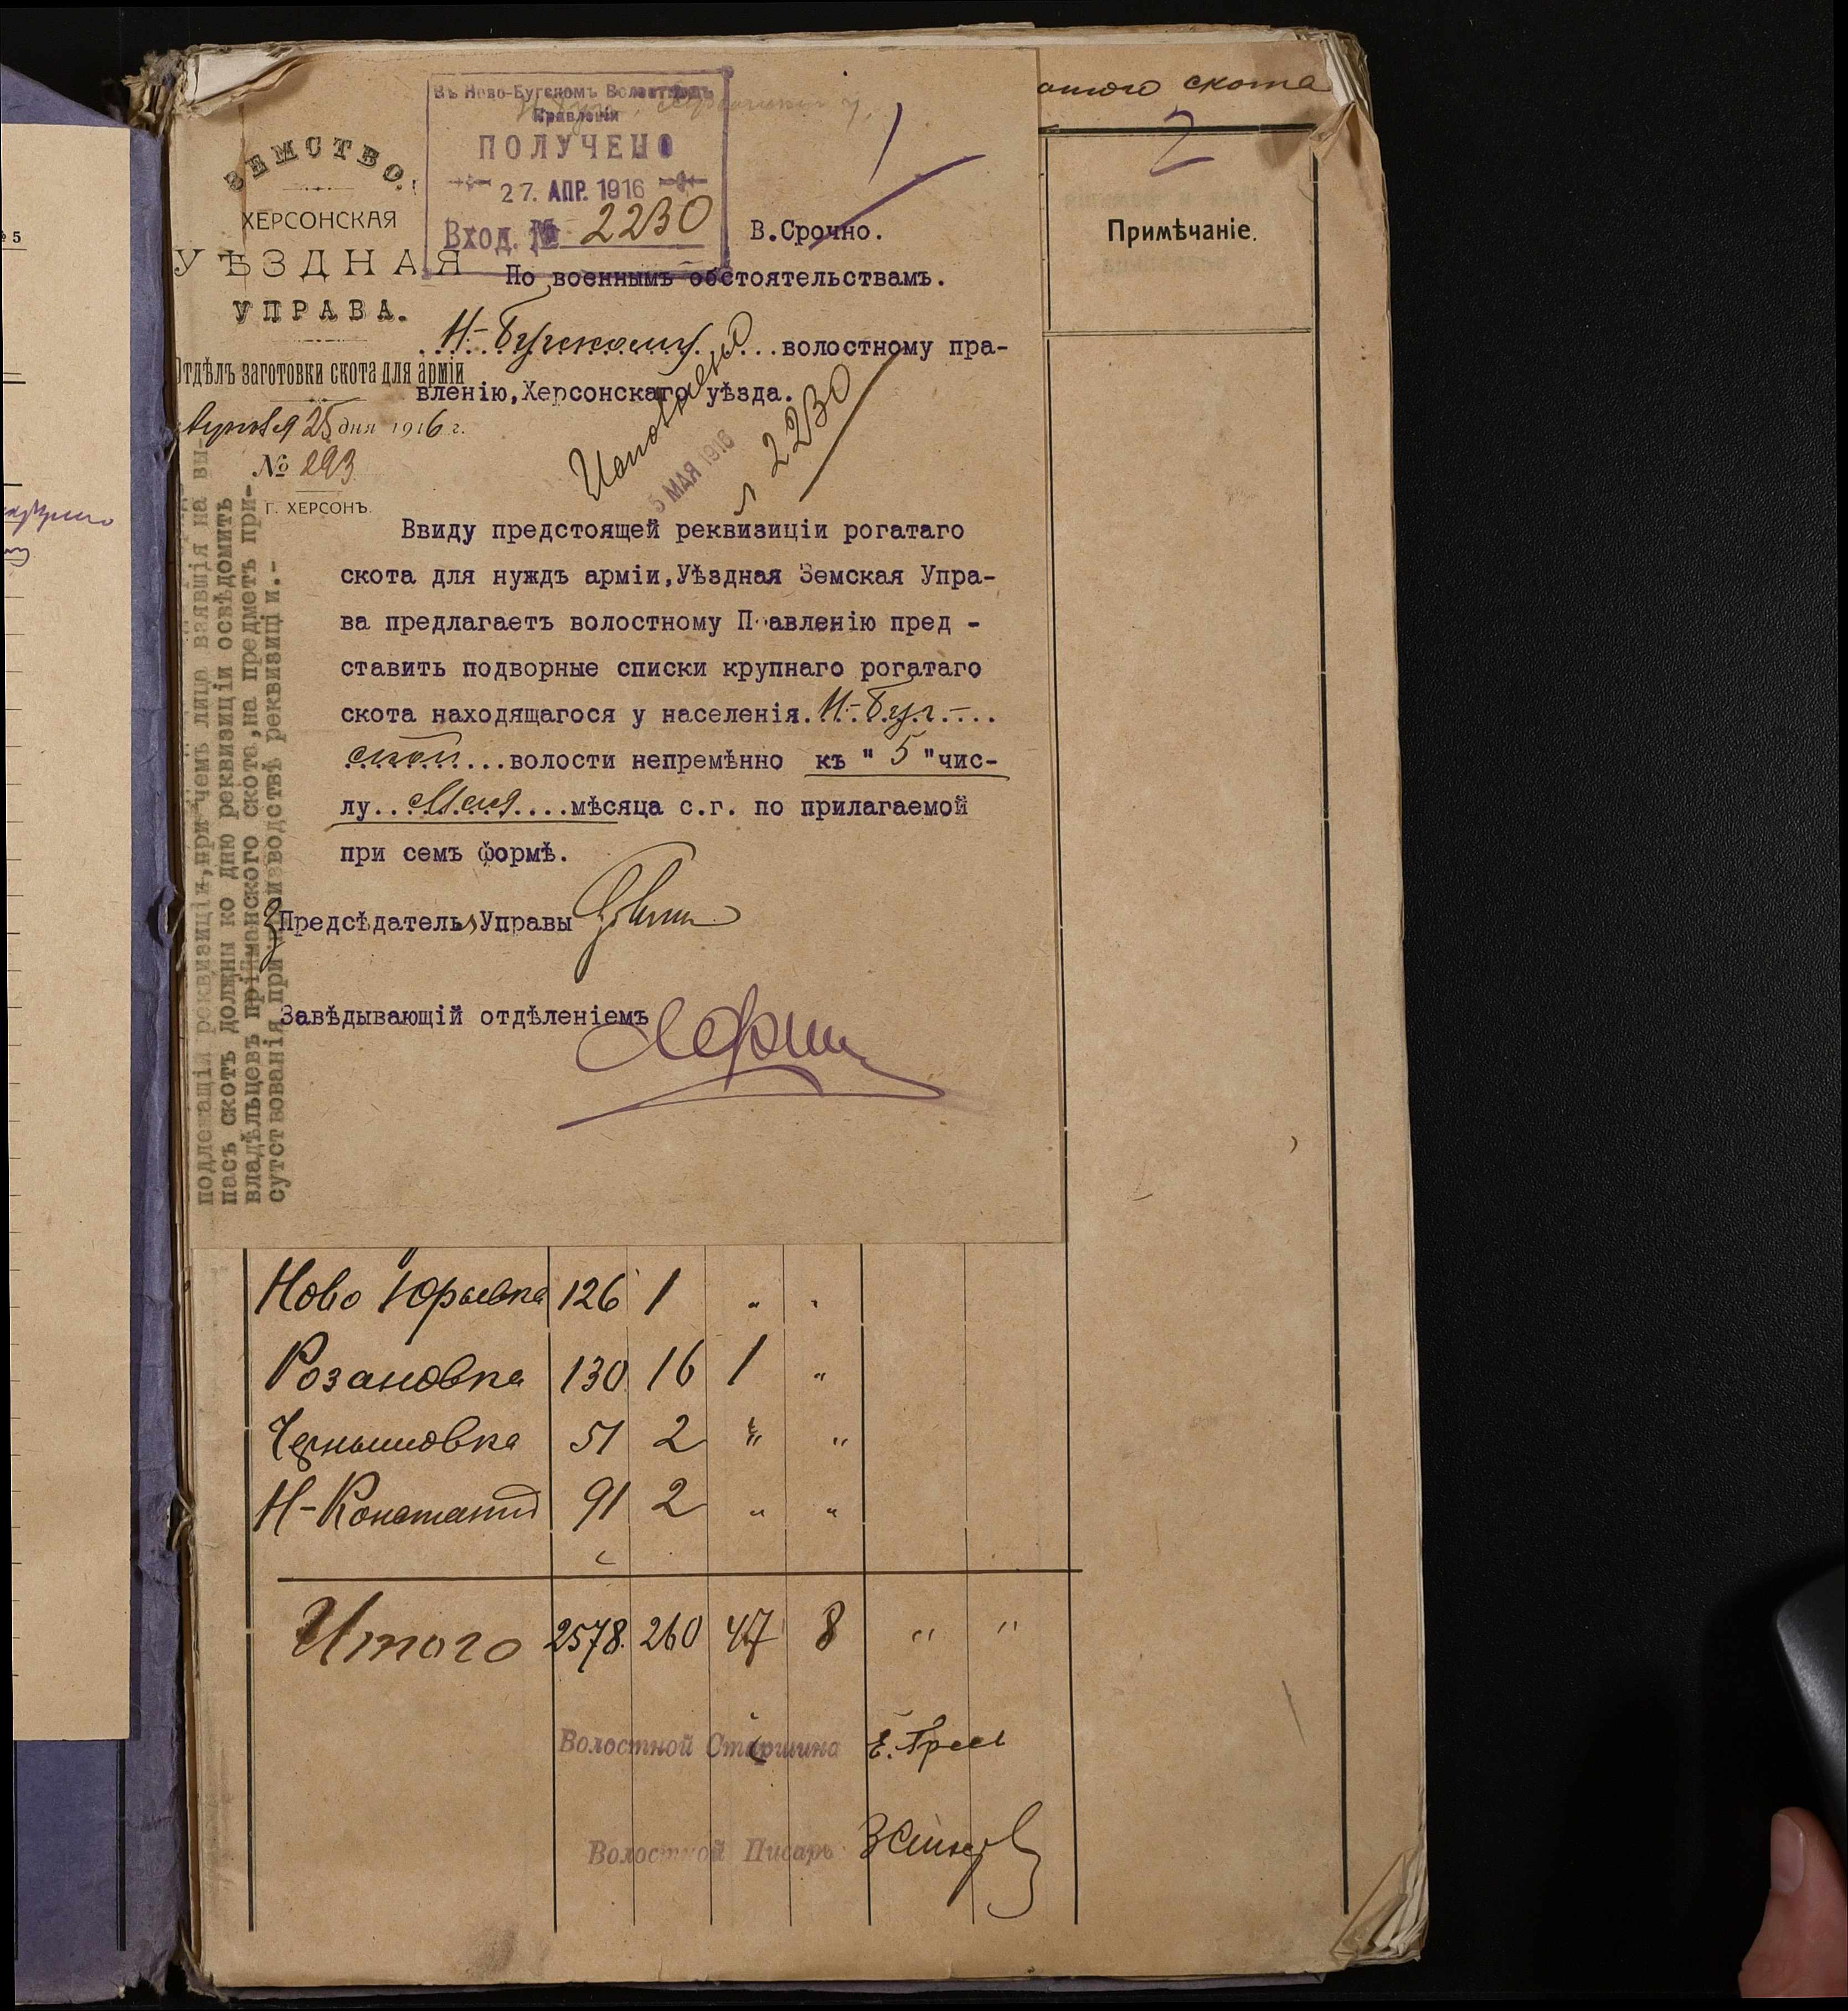 Въ Ново-Бугскомъ Волостномъ
Правленіи
ПОЛУЧЕНО
27. АПР. 1916
Вход. № 2230
1
ЗЕМСТВО.
ХЕРСОНСКАЯ
УѢЗДНАЯ
УПРАВА.
Отдѣлъ заготовки скота для арміи
Апрѣля 25 дня 1916 г.
№ 293
Г. ХЕРСОНЪ.
В.Срочно.
По военнымъ обстоятельствамъ.
Н-Бугскому...волостному пра-
вленію,Херсонскаго уѣзда.
5 МАЯ 1916
2230
Ввиду предстоящей реквизиціи рогатаго
скота для нуждъ арміи,Уѣздная Земская Упра-
ва предлагаетъ волостному П авленію пред -
ставить подворные списки крупнаго рогатаго
скота находящагося у населенія.Н-Буг-....
ской...волости непремѣнно къ " 5 "чис-
лу..Мая....мѣсяца с.г. по прилагаемой
при семъ формѣ.
Предсѣдатель Управы
Завѣдывающій отдѣленіемъ
подлежащій реквизиціи,при чемъ лица взявшія на вы-
пасъ скотъ должны ко дню реквизиціи освѣдомить
владѣльцевъ скота,на предметъ при-
сутствованія при производствѣ реквизиціи.-
скота
2
Примѣчаніе.
Ново Юрьевка 126 1 " "
Розановка 130 16 1 "
Чернышовка 51 2 " "
Н-Константин 91 2 " "
Итого 2578. 260 47 8 " "
Волостной Старшина
Волостной Писарь
№ 5